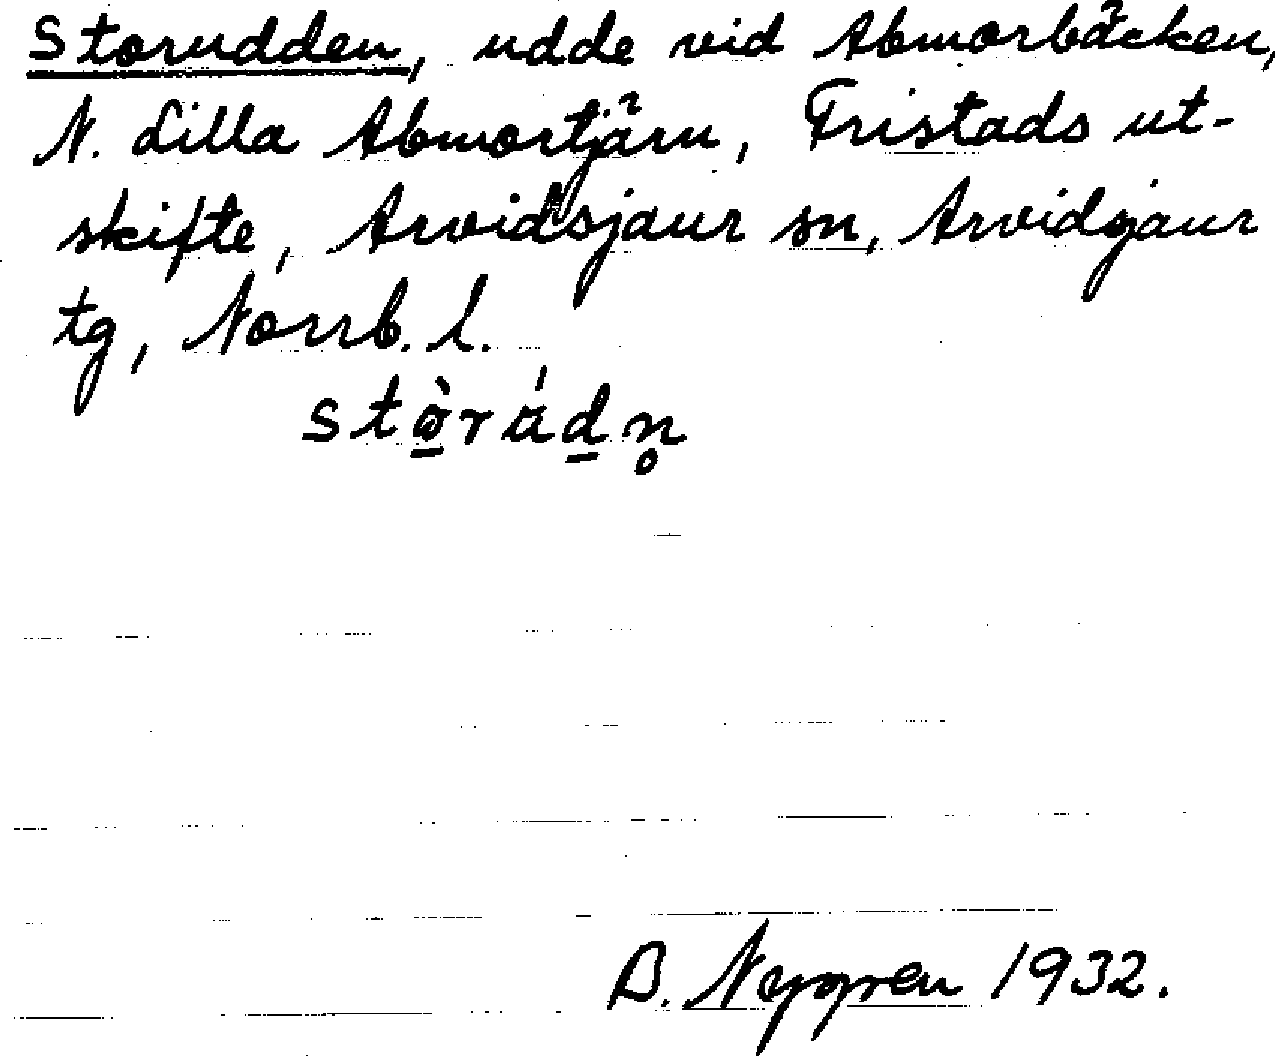 Storudden, udde vid Abmorbäcken,
N. Lilla Abmortjärn, Fristads ut-
skifte, Arvidsjaur sn, Arvidsjaur
tg, Norrb. l.
B. Nygren 1932.